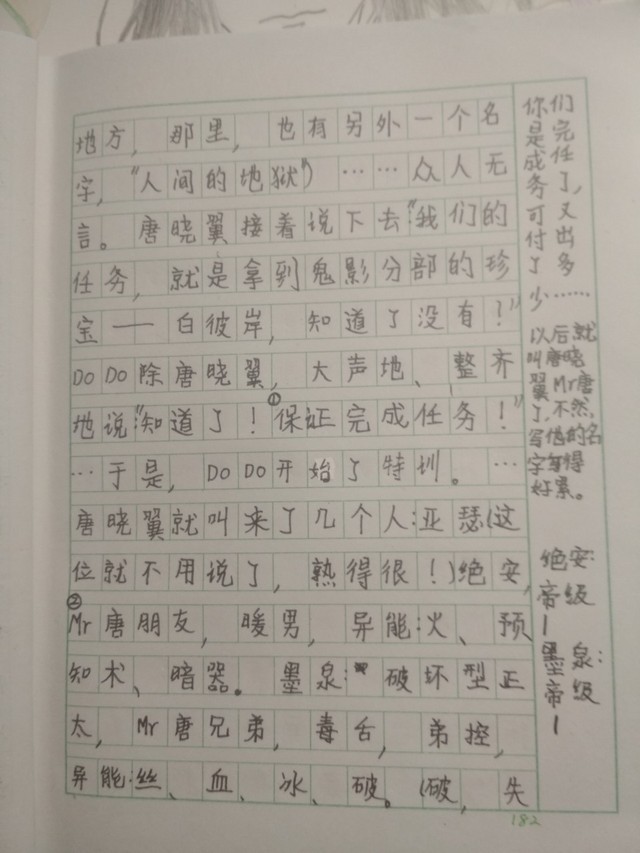 地方，那里，也有另外一个名
字，“人间的地狱”）……众人无
言。唐晓翼接着说下去“我们的
任务，就是拿到鬼影分部的珍
宝——白彼岸，知道了没有！”
DODO除唐晓翼，大声地、整齐
地说“知道了！①保证完成任务！”
…于是，DODO开始了特训。…
唐晓翼就叫来了几个人：亚瑟（这
位就不用说了，熟得很！）绝安，
②Mr唐朋友，暖男，异能：火、预
知术、暗器。墨泉：破坏型正
太，Mr唐兄弟，毒舌，弟控，
异能：丝、血、冰、破。（破，失
你们
是完
成任
务了，
可又
付出
了多
少……
以后就
叫唐晓
翼Mr唐
了，不然，
写他的名
字写得
好累。
绝安：
帝级
1
墨泉：
帝级
1
182